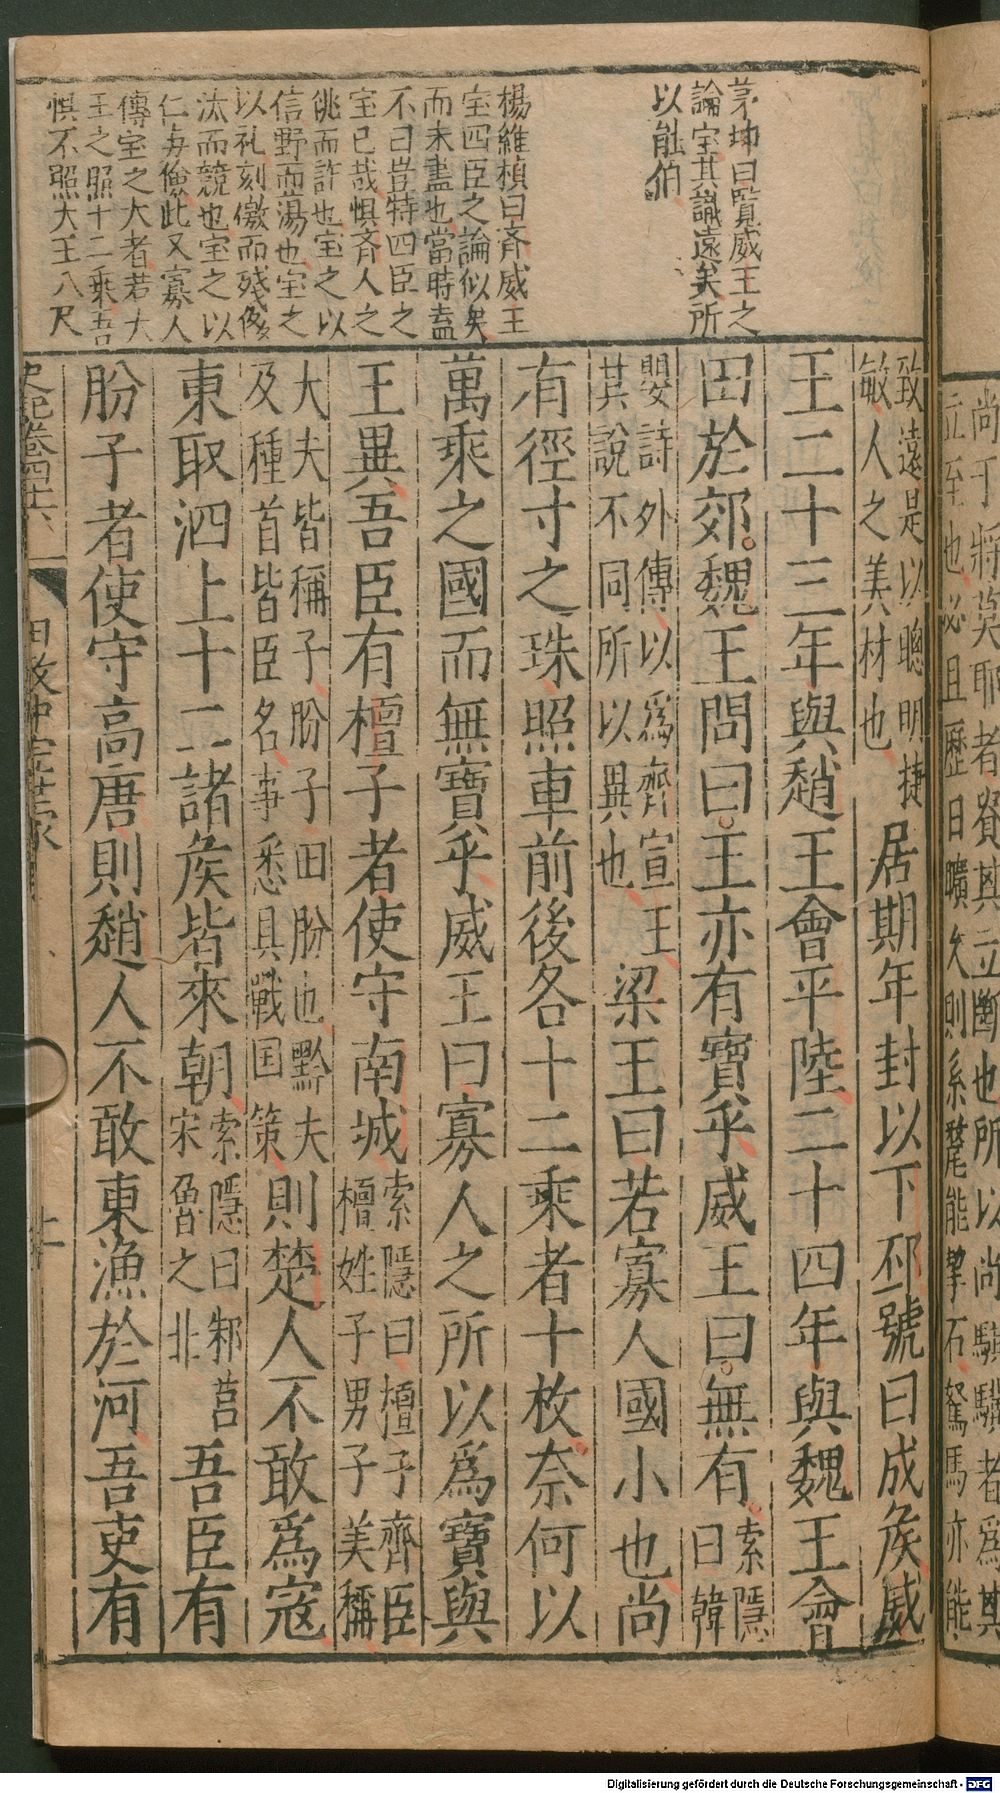 尚干將莫耶者貴其立斷也所以尚騏驥者爲其
立至也必且歷日曠久則系氂能挈石駑馬亦能
茅坤曰覽威王之
論宝其識遠矣所
以能伯
楊維楨曰齊威王
宝四臣之論似矣
而未盡也當時盍
不曰豈特四臣之
宝已哉惧斉人之
佻而許也宝之以
信野而蕩也宝之
以礼刻儌而殘
汰而競也宝之以
仁毎儉此又寡人
傳宝之大者若大
王之照十二乘吾
惧不照大王八尺
致遠是以聰明捷
敏人之美材也
居期年封以下邳號曰成侯威
王二十三年與趙王會平陸二十四年與魏王會
田於郊魏王問曰王亦有寶乎威王曰無有
索隱
曰韓
嬰詩外傳以爲齊宣王
其說不同所以異也
梁王曰若寡人國小也尚
有徑寸之珠照車前後各十二乘者十枚奈何以
萬乘之國而無寶乎威王曰寡人之所以爲寶與
王異吾臣有檀子者使守南城
索隱曰檀子齊臣
檀姓子男子美稱
大夫皆稱子肦子田肦也黔夫
及種首皆臣名事悉具戰国策
則楚人不敢爲寇
東取泗上十二諸侯皆來朝
索隱曰邾莒
宋魯之北
吾臣有
肦子者使守高唐則趙人不敢東漁於河吾吏有
史記卷四十六
田敬仲完世家
Digitalisierung gefördert durch die Deutsche Forschungsgemeinschaft - DFG